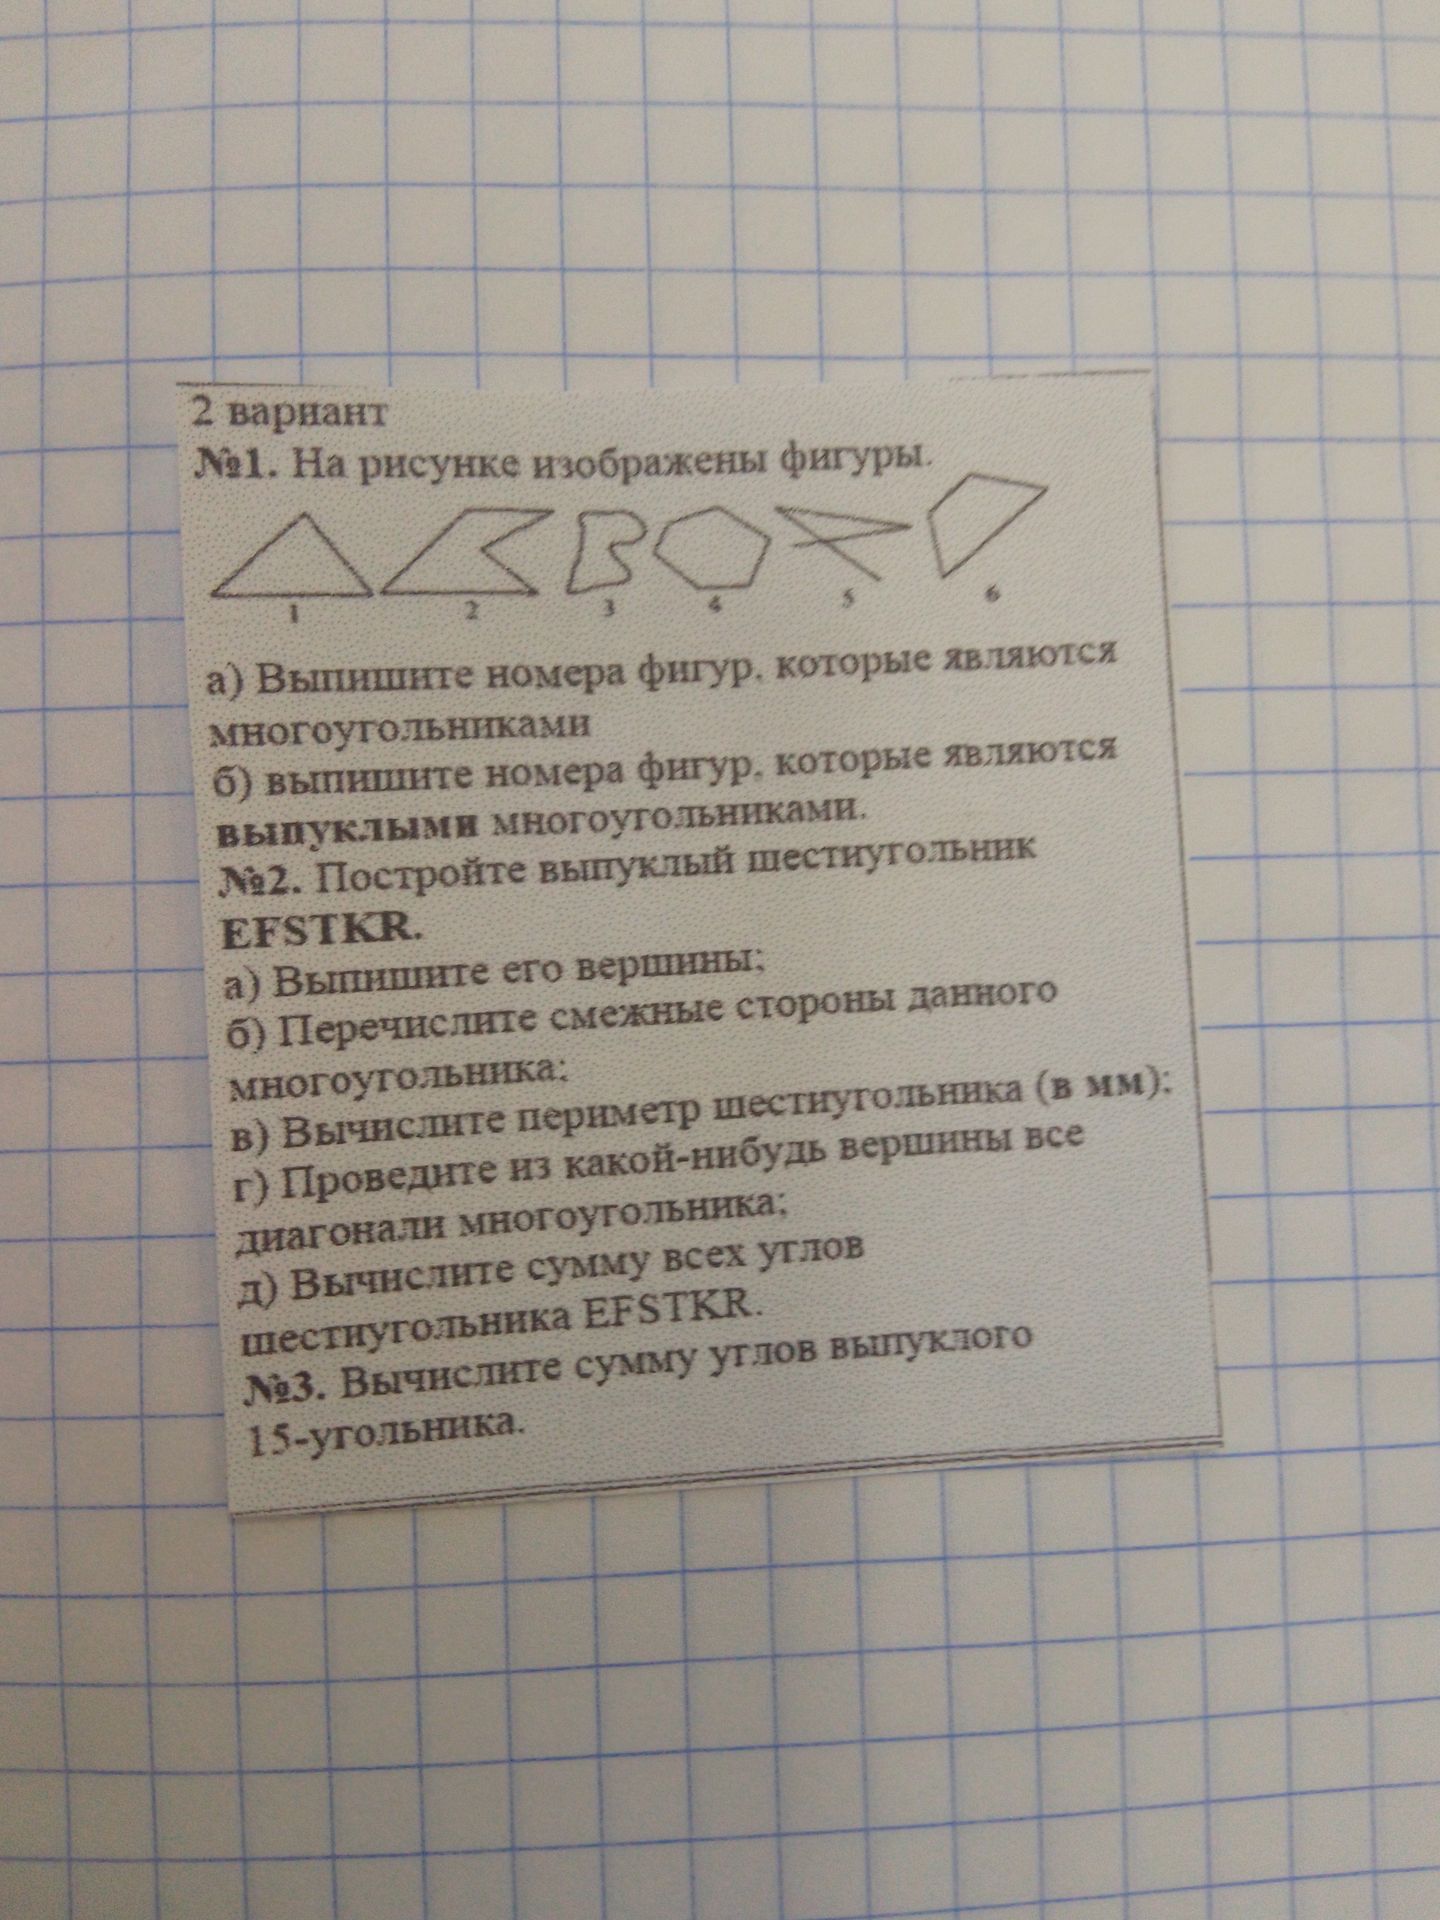 2 вариант
№1. На рисунке изображены фигуры.
1 2 3 4 5 6
а) Выпишите номера фигур, которые являются
многоугольниками
б) выпишите номера фигур, которые являются
выпуклыми многоугольниками.
№2. Постройте выпуклый шестиугольник
EFSTKR.
а) Выпишите его вершины;
б) Перечислите смежные стороны данного
многоугольника;
в) Вычислите периметр шестиугольника (в мм);
г) Проведите из какой-нибудь вершины все
диагонали многоугольника;
д) Вычислите сумму всех углов
шестиугольника EFSTKR.
№3. Вычислите сумму углов выпуклого
15-угольника.